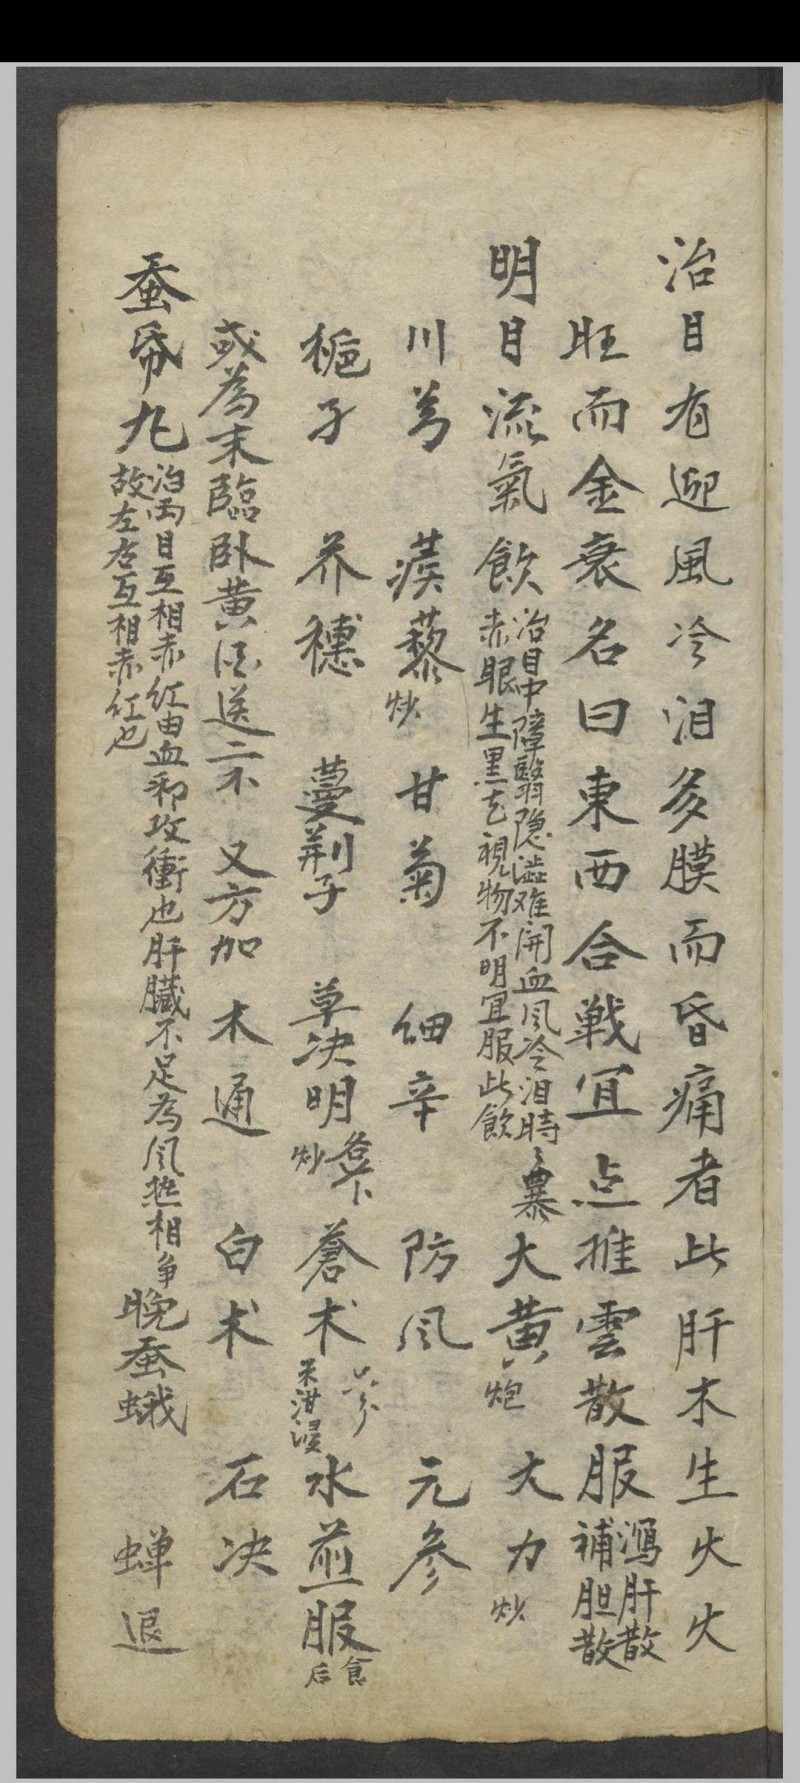 治目有迎風冷泪多膜而昏痛者此肝木生火火
旺而金衰名曰東西合戦宜点推雲散服瀉肝散
補胆散
明目流氣飲治目中障翳隐澁难開血风冷泪時〻暴
赤眼生黒花視物不明宜服此飲
大黄炮 大力炒
川芎 蒺藜炒 甘菊 细辛 防风 元参
栀子 芥穗 蔓荆子 草决明炒 蒼术米泔浸 水煎服食后
或為末臨卧黄酒送二 又方加 木通 白术 石决
蚕 九治两目互相赤红由血邪攻衝也肝臓不足為风热相争
故左右互相赤红也
晚蚕蛾 蝉退